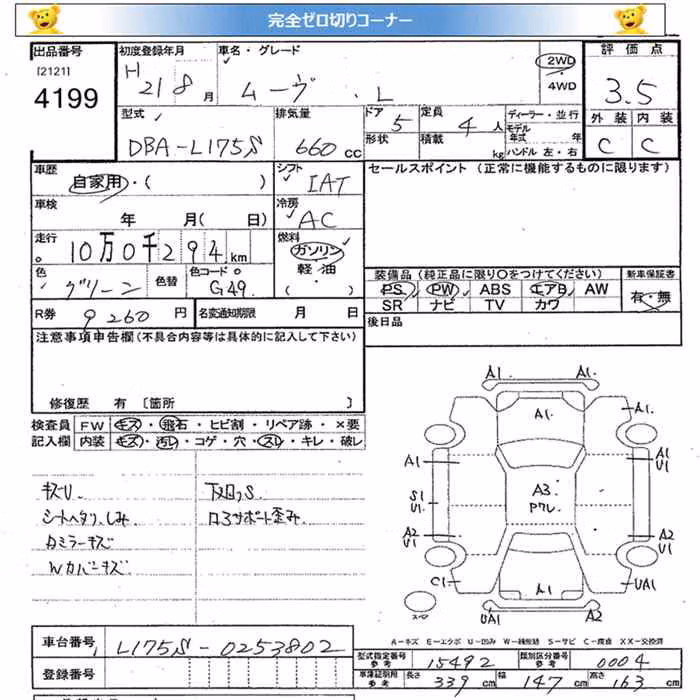 完全ゼロ切りコーナー
出品番号 初度登録年月 車名・グレード 評価点
[2121] H 21 8 月 ムーヴ . L 2WD 4WD
4199 3.5
型式 排気量 ドア 定員 ディーラー・並行 外装 内装
DBA-L175S 660 cc 5 4 人 モデル年式 年 C C
形状 積載 kg ハンドル 左・右
車歴 自家用・( ) シフト IAT セールスポイント (正常に機能するものに限ります)
車検 年 月( 日) 冷房 AC
走行 10万0千294km 燃料 ガソリン 軽・油 ( ・ )
色 グリーン 色替 色コード G49
装備品 (純正品に限り○をつけてください) 新車保証書
PS PW ABS エアB AW 有・無
SR ナビ TV カワ
R券 9260 円 名変通知期限 月 日 後日品
注意事項申告欄(不具合内容等は具体的に記入して下さい)
修復歴 有 〔箇所 〕
検査員 FW キズ・飛石・ヒビ割・リペア跡・×要
記入欄 内装 キズ・汚レ・コゲ・穴・スレ・キレ・破レ
キズU 下廻りS
シートヘタリ、しみ ロアサポート歪み
ミラーキズ
Wカバーキズ
A1 A1
A1 A1
A1 A1 U1
A3
Pワレ
S1 U1
A2 U1 A2 U1
C1 A1 UA1
スペア UA1 A2
A-キズ E-エクボ U-凹み W-補修跡 S-サビ C-腐食 XX-交換済
車台番号 L175S-0253802
型式指定番号 参考 15492 類別区分番号 参考 0004
登録番号
車庫証明用 参考 長さ 339 cm 幅 147 cm 高さ 163 cm